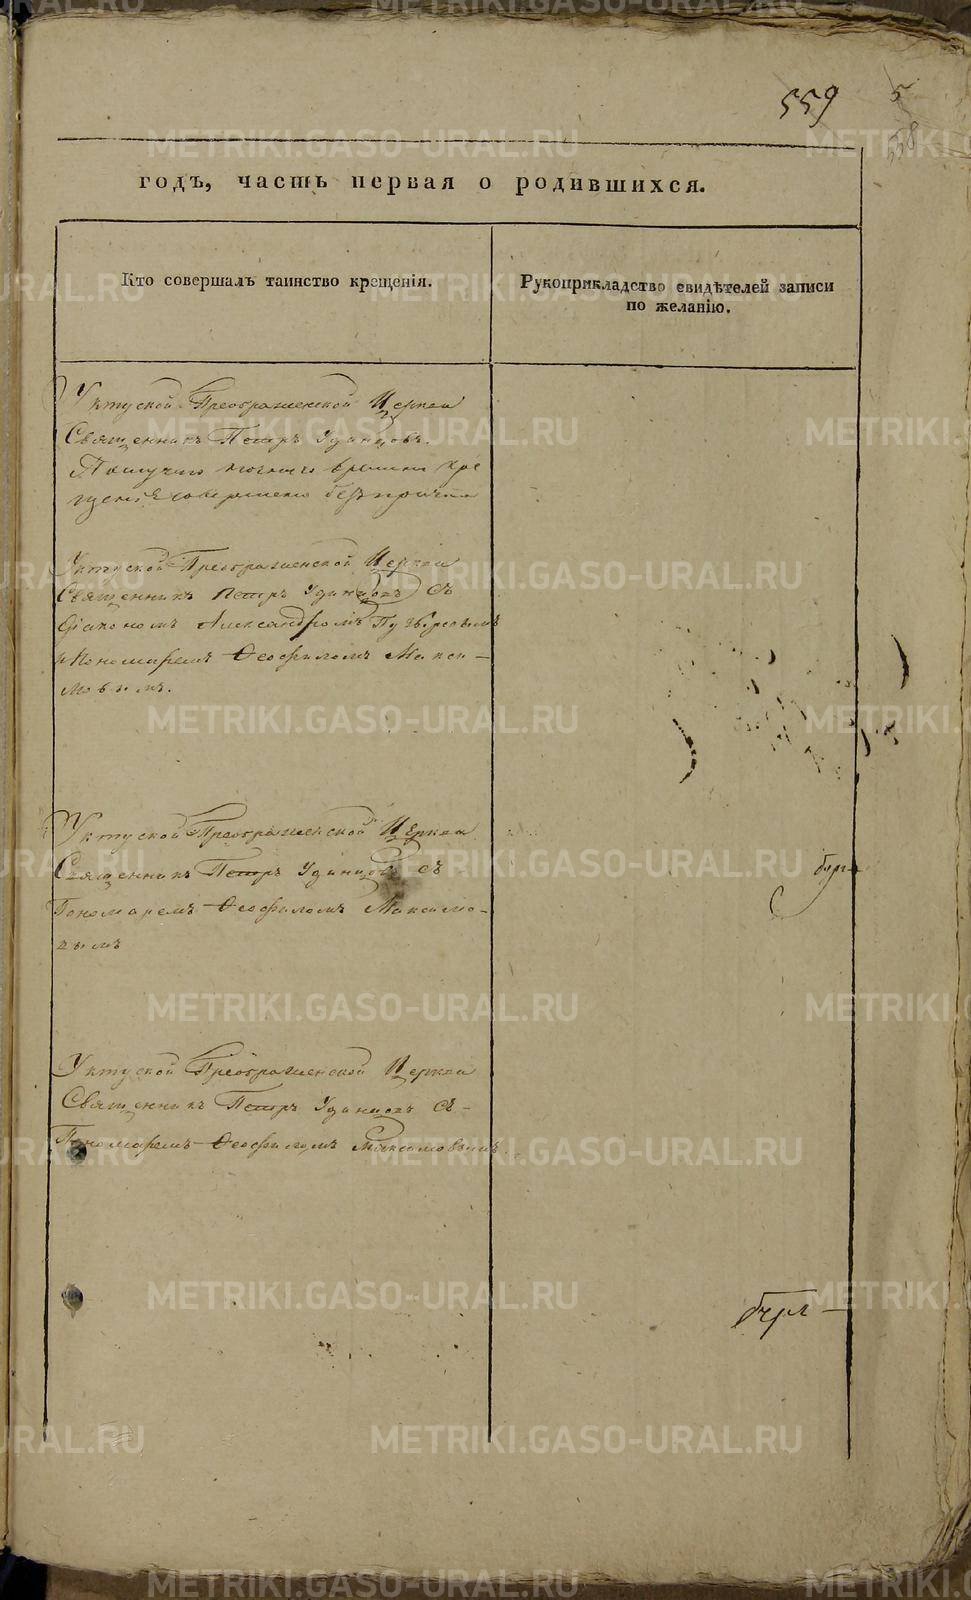 559
5
558
годъ, часть первая о родившихся.
Кто совершалъ таинство крещенія.
Рукоприкладство свидѣтелей записи
по желанію.
Уктуской Преображенской Церкви
Священникъ Петръ Удинцовъ.
По случаю ночнаго времени кре
щеніе совершено безъ причта
Уктуской Преображенской Церкви
Священникъ Петръ Удинцовъ съ
Діакономъ Александромъ
и Пономаремъ Ѳеофиломъ Макси-
мовымъ.
Уктуской Преображенской Церкви
Священникъ Петръ Удинцовъ съ
Пономаремъ Ѳеофиломъ Максимо-
вымъ
Уктуской Преображенской Церкви
Священникъ Петръ Удинцовъ съ-
Пономаремъ Ѳеофиломъ Максимовымъ
METRIKI.GASO-URAL.RU